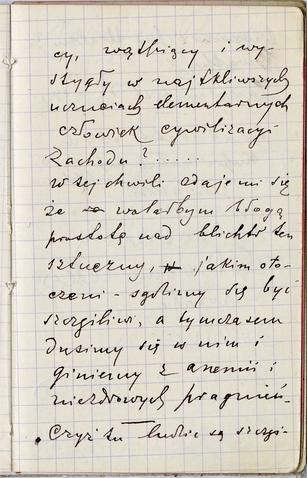 cy, wątpiący i wy-
stygły w najtkliwszych
uczuciach elementarnych
człowiek cywilizacyi
Zachodu?......
w tej chwili zdaje mi się
że wolałbym błogą
prostotę nad blichtr ten
sztuczny, jakim oto-
czeni - sądzimy się być
szczęśliwi, a tymczasem
dusimy się w nim i
giniemy z anemii i
niezdrowych pragnień.
Czyż tu ludzie są szczę-